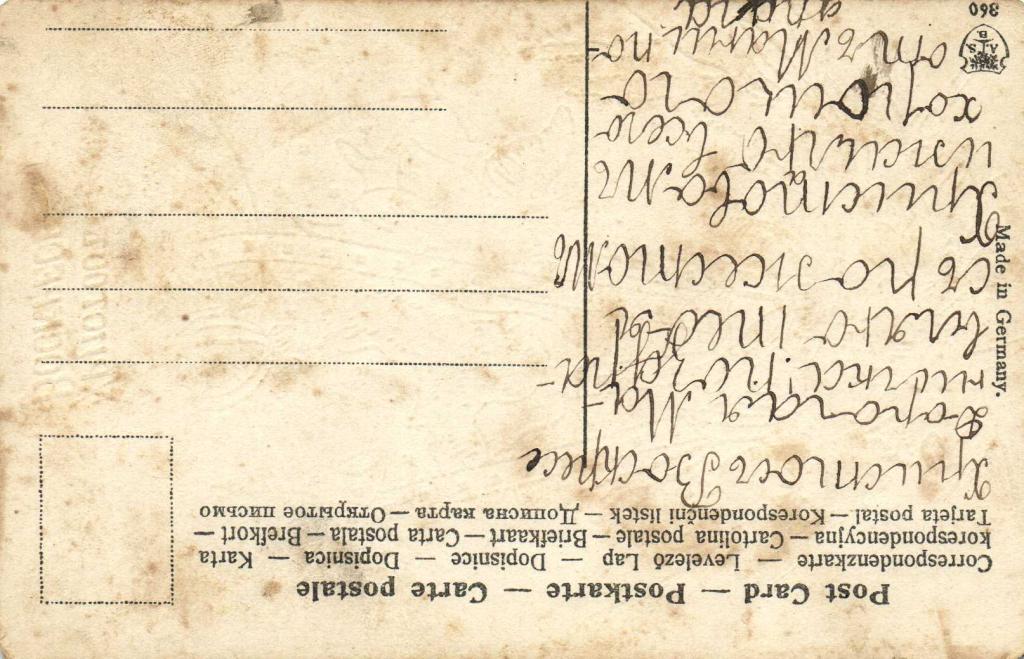 Post Card — Postkarte — Carte postale
Correspondenzkarte — Levelező Lap — Dopisnice — Dopisnica — Karta
korespondencyjna — Cartolina postale — Briefkaart — Carta postala — Brefkort —
Tarjeta postal — Korespondenční listek — Дописна карта — Открытое письмо
Христосъ Воскресе
Дорогая Ма-
ничка! поздра-
вляю тебя
съ
Христовымъ
и желаю всего
хорошаго
отъ Маши по-
Made in Germany.
A. S.
B
360